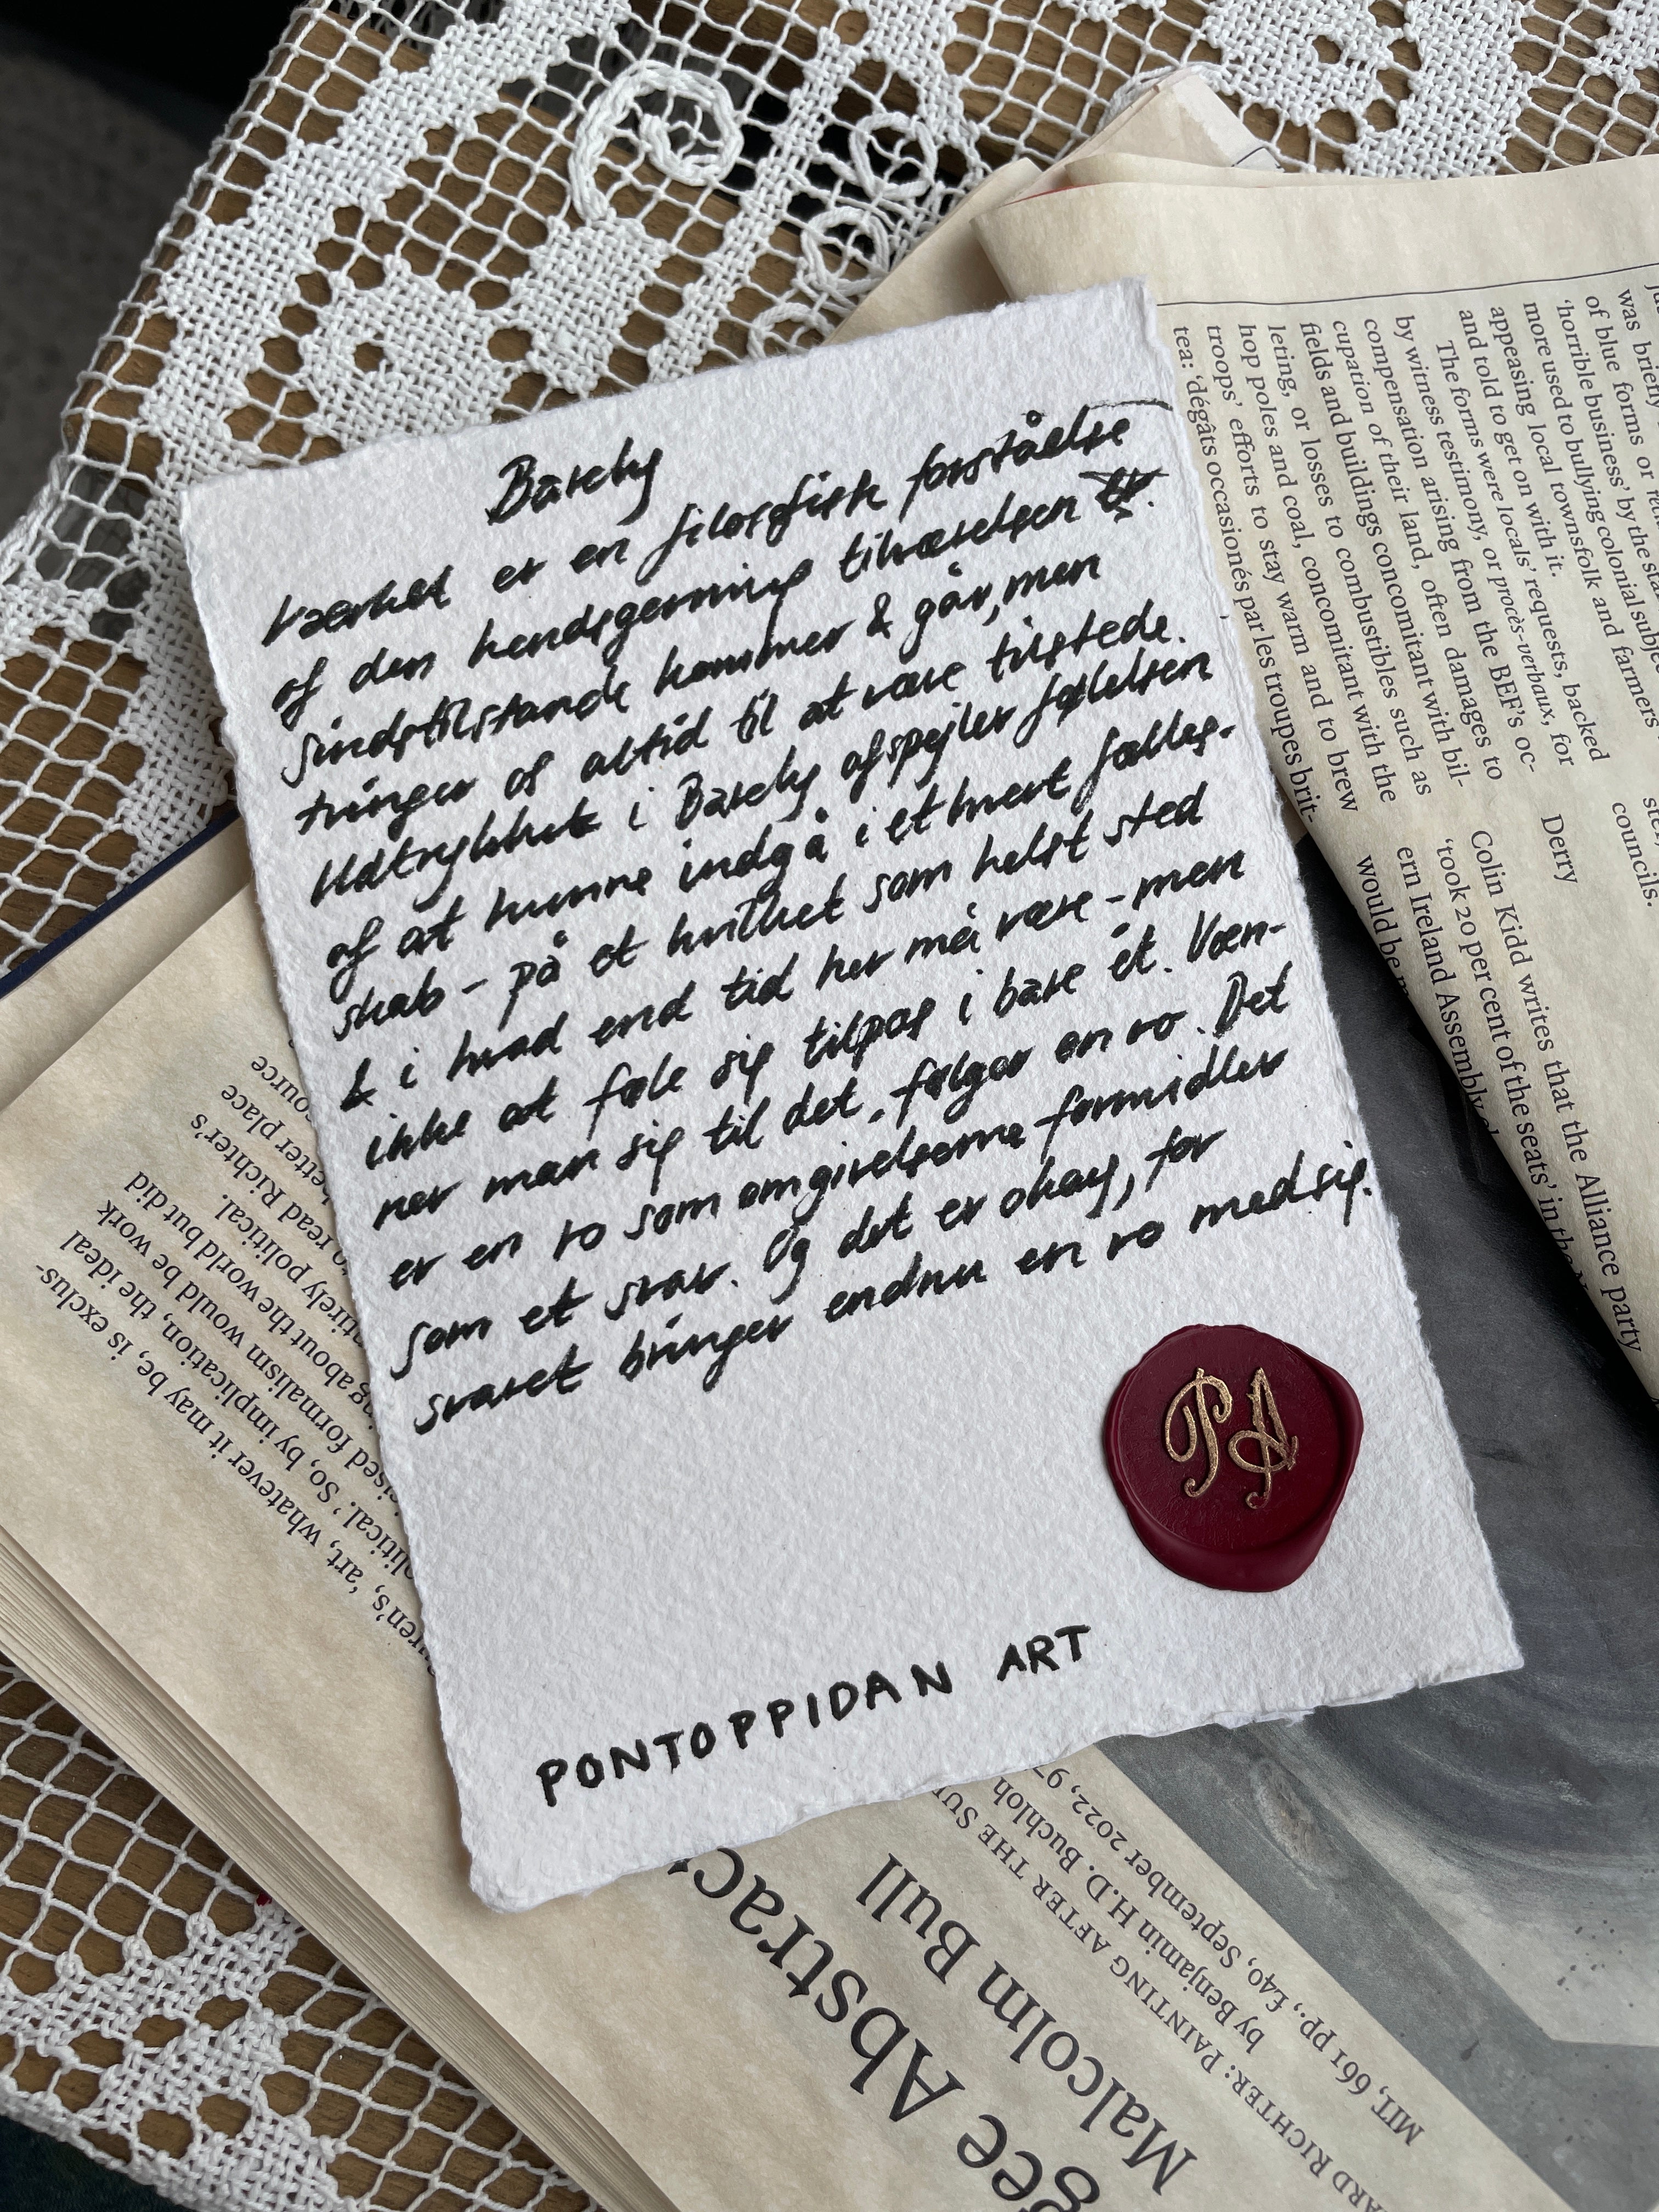 Barely
Værket er en filosofisk forståelse
af den hendsgerning tilværelsen er.
Sindstilstande kommer & går, men
tvinger os altid til at være tilstede.
Udtrykket i Barely afspejler følelsen
af at kunne indgå i et hvert fælles-
skab - på et hvilket som helst sted
& i hvad end tid her må være - men
ikke at føle sig tilpas i bare ét. Væn-
ner man sig til det, følger en ro. Det
er en ro som omgivelserne formidler
som et svar. Og det er okay, for
svaret bringer endnu en ro med sig.
PA
PONTOPPIDAN ART
was briefly
of blue forms or
'horrible business' by the
more used to bullying colonial
appeasing local townsfolk and farmers
and told to get on with it.
The forms were locals' requests, backed
by witness testimony, or procès-verbaux, for
compensation arising from the BEF's oc-
cupation of their land, often damages to
fields and buildings concomitant with bil-
leting, or losses to combustibles such as
hop poles and coal, concomitant with the
troops' efforts to stay warm and to brew
tea: 'dégâts occasionés par les troupes brit-
councils.
Derry
Colin Kidd writes that the Alliance party
'took 20 per cent of the seats' in the
ern Ireland Assembly
would be
uren's, 'art, whatever it may be, is exclus-
olitical.' So, by implication, the ideal
ised formalism would be work
ing about the world but did
ntirely political.
to read Richter's
etter place
ource
gee Abstrac
Malcolm Bull
ARD RICHTER: PAINTING AFTER THE SU
by Benjamin H.D. Buchloh
MIT, 661 pp., £40, September 2022, 97